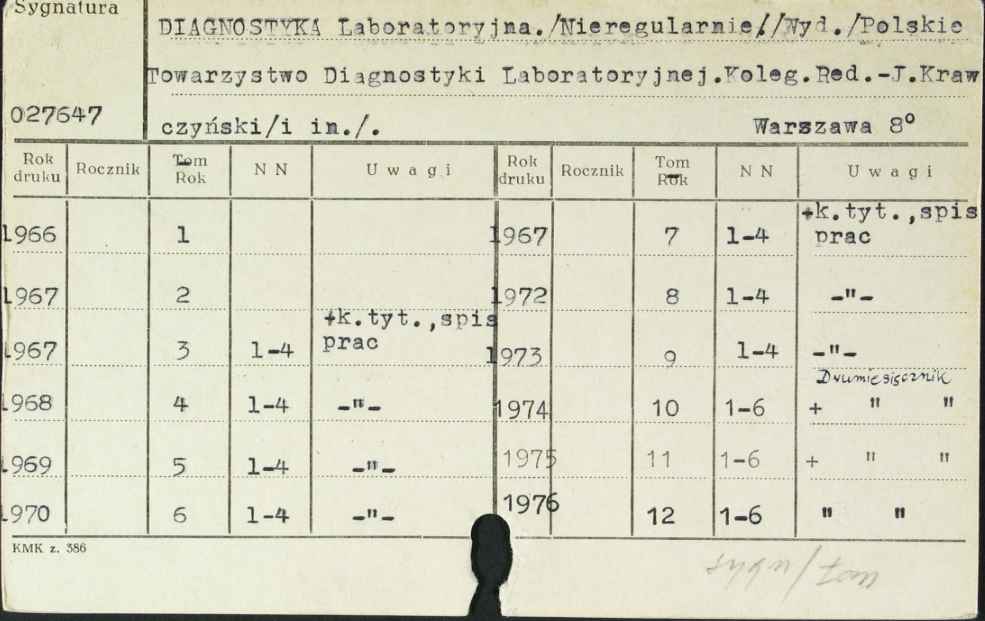 Sygnatura
DIAGNOSTYKA Laboratoryjna./Nieregularnie//Wyd./Polskie
Towarzystwo Diagnostyki Laboratoryjnej.Koleg.Red.-J.Kraw
027647
czyński/i in./. Warszawa 8°
Rok druku Rocznik Tom Rok N N U w a g i Rok druku Rocznik Tom Rok N N U w a g i
1966 1 1967 7 1-4 +k.tyt.,spis prac
1967 2 1972 8 1-4 -"-
1967 3 1-4 +k.tyt.,spis prac 1973 9 1-4 -"-
Dwumiesięcznik
1968 4 1-4 -"- 1974 10 1-6 + " "
1969 5 1-4 -"- 1975 11 1-6 + " "
1970 6 1-4 -"- 1976 12 1-6 " "
KMK z. 386